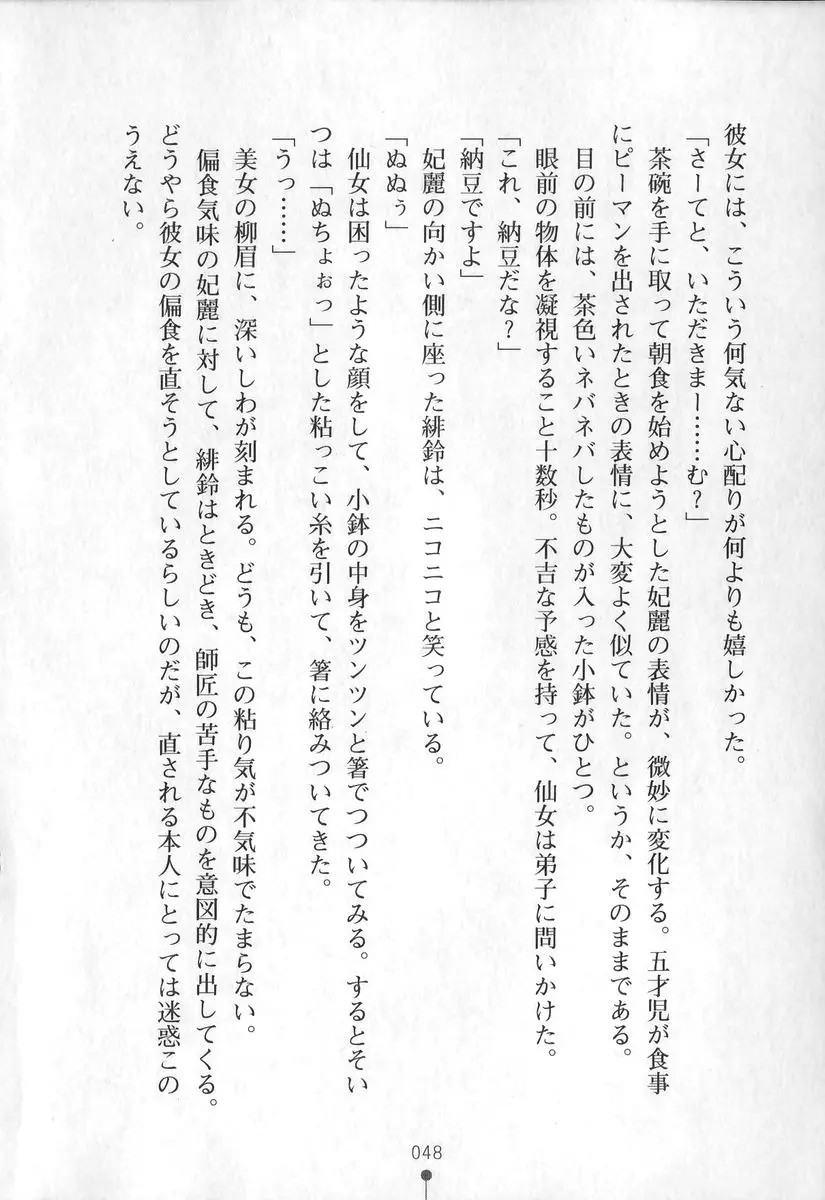 彼女には、こういう何気ない心配りが何よりも嬉しかった。
「さーてと、いただきまー……む？」
茶碗を手に取って朝食を始めようとした妃麗の表情が、微妙に変化する。五才児が食事
にピーマンを出されたときの表情に、大変よく似ていた。というか、そのままである。
目の前には、茶色いネバネバしたものが入った小鉢がひとつ。
眼前の物体を凝視すること十数秒。不吉な予感を持って、仙女は弟子に問いかけた。
「これ、納豆だな？」
「納豆ですよ」
妃麗の向かい側に座った緋鈴は、ニコニコと笑っている。
「ぬぬぅ」
仙女は困ったような顔をして、小鉢の中身をツンツンと箸でつついてみる。するとそい
つは「ぬちょぉっ」とした粘っこい糸を引いて、箸に絡みついてきた。
「うっ……」
美女の柳眉に、深いしわが刻まれる。どうも、この粘り気が不気味でたまらない。
偏食気味の妃麗に対して、緋鈴はときどき、師匠の苦手なものを意図的に出してくる。
どうやら彼女の偏食を直そうとしているらしいのだが、直される本人にとっては迷惑この
うえない。
048